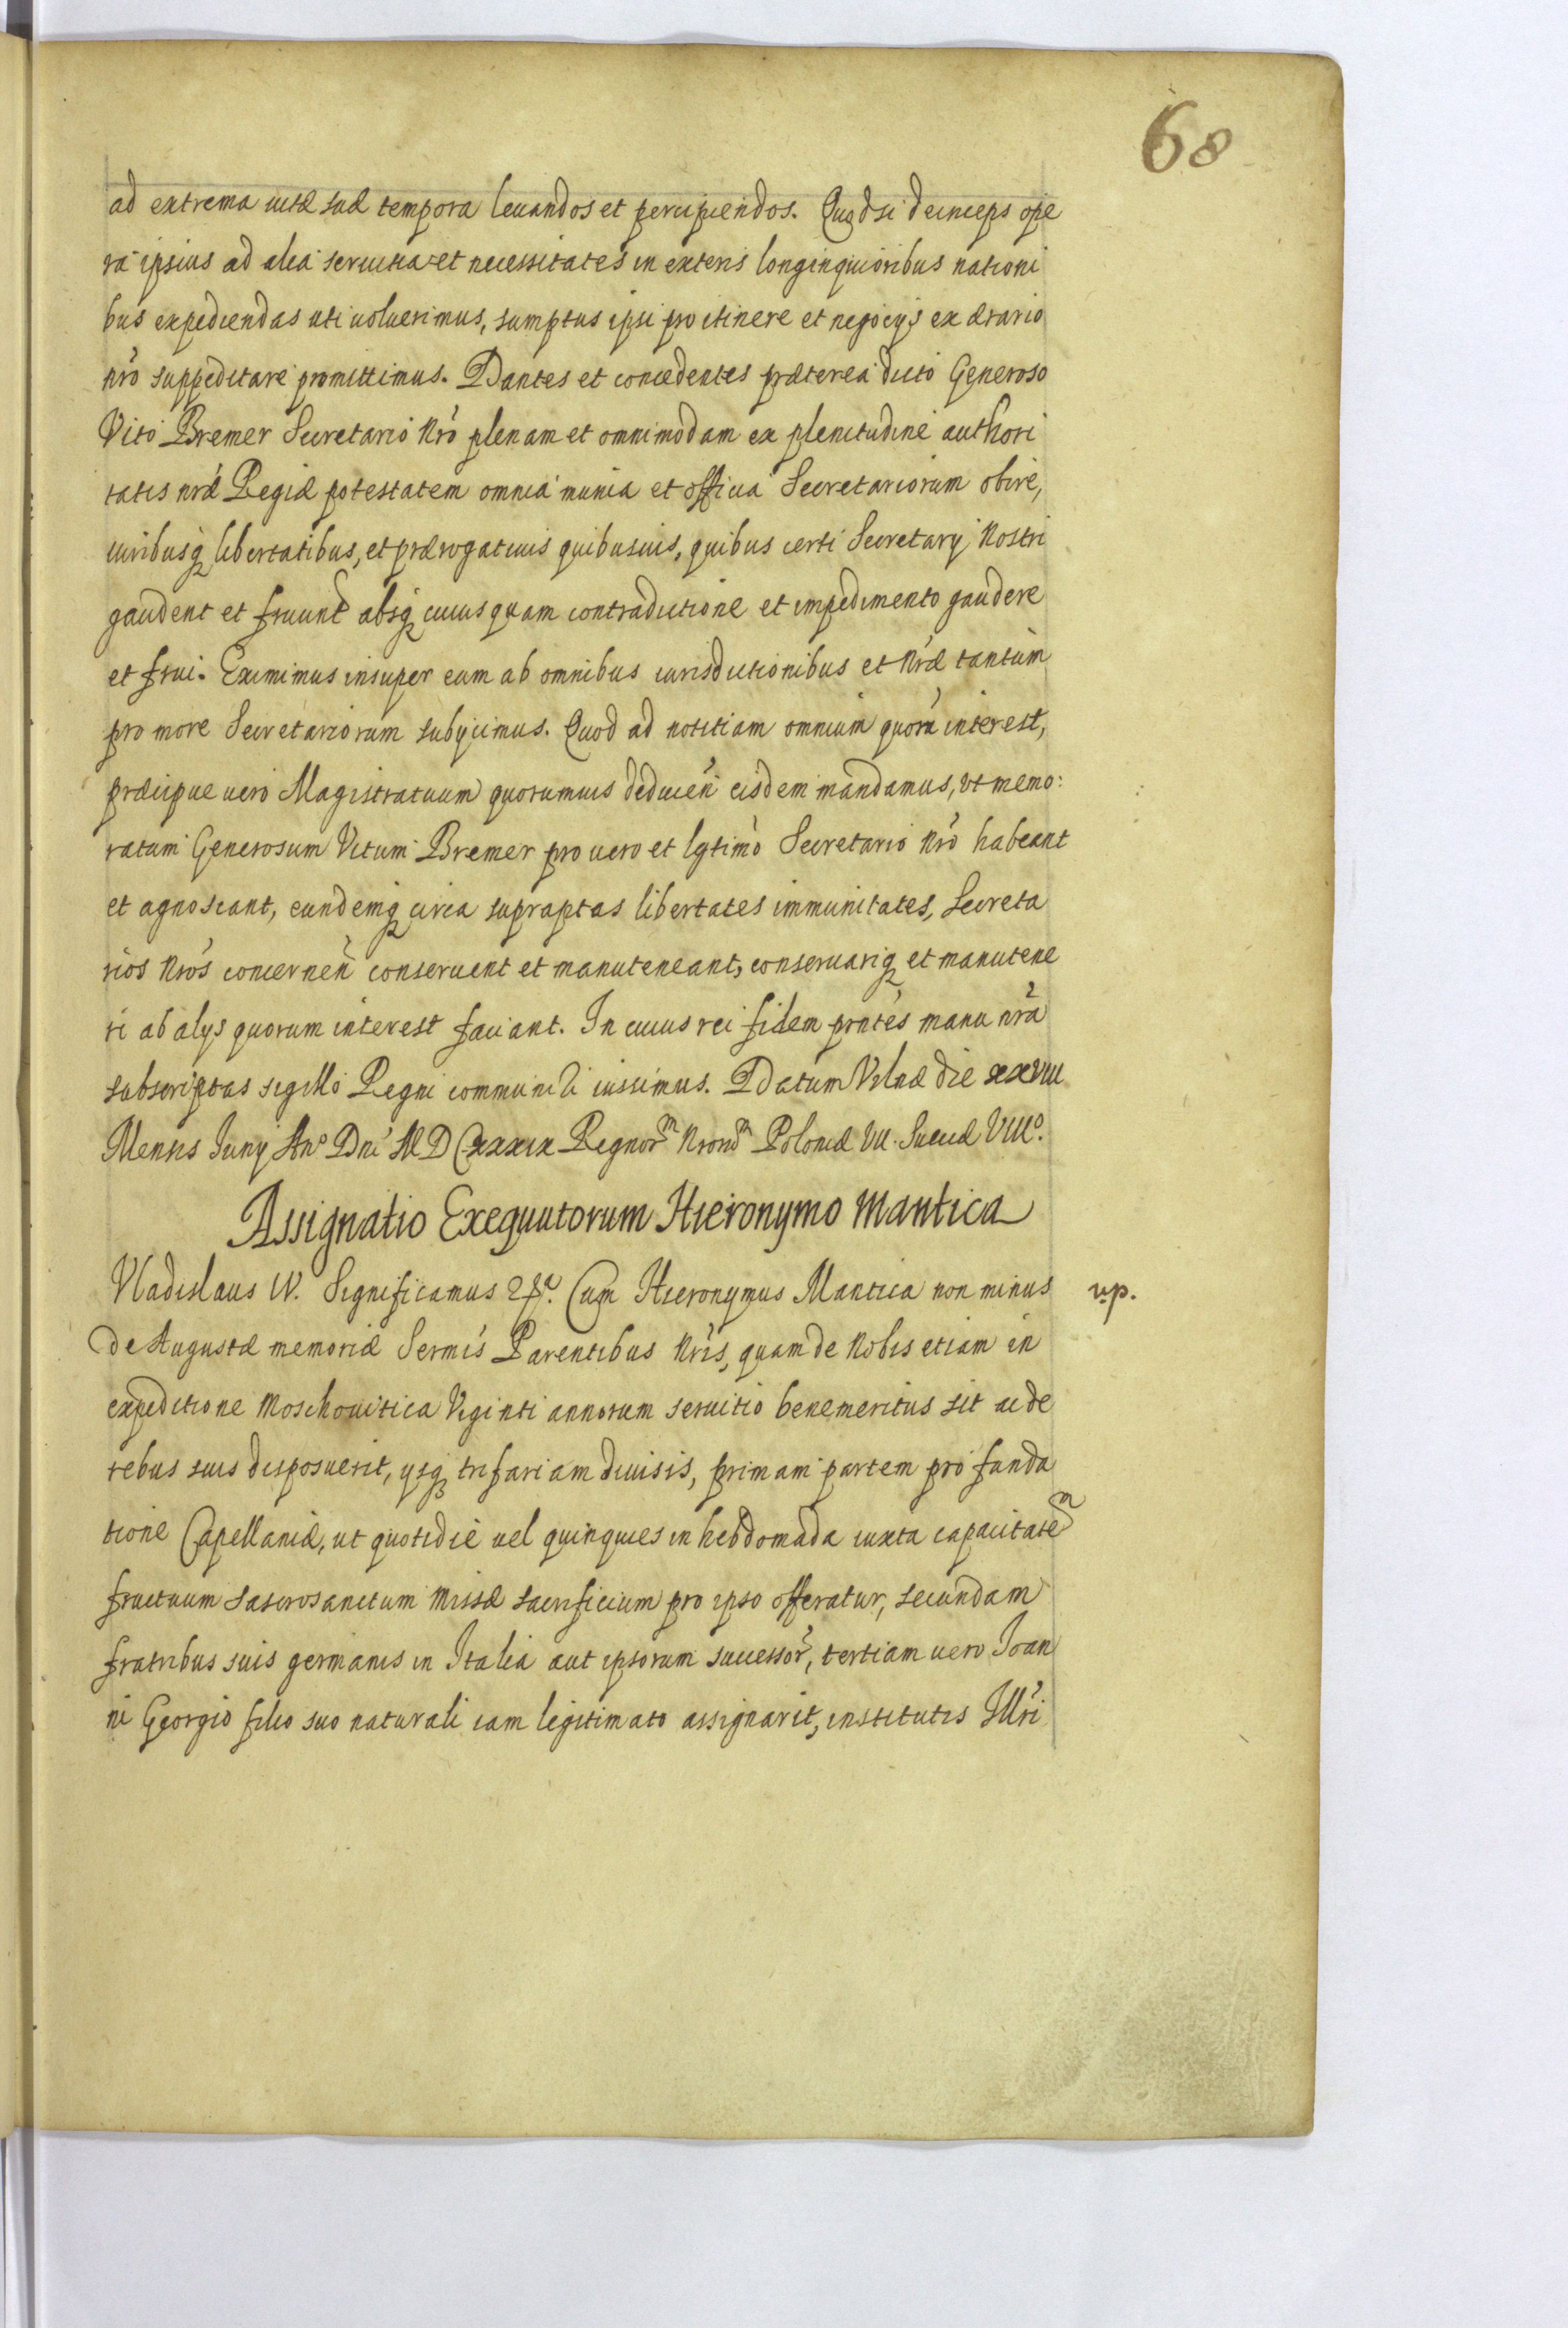 68
ad extrema uitæ suæ tempora leuandos et percipiendos. Quodsi deinceps ope
ra ipsius ad alia seruitia et necessitates in exteris longinquioribus nationi
bus expediendas uti uoluerimus, sumptus ipsi pro itinere et negocijs ex ærario
nr̃o suppeditare promittimus. Dantes et concedentes præterea dicto Generoso
Vito Bremer Secretario Nr̃o plenam et omnimodam ex plenitudine authori
tatis nr̃æ Regiæ potestatem omnia munia et officia Secretariorum obire,
iuribusq́ libertatibus, et prærogatiuis quibusuis, quibus certi Secretarij Nostri
gaudent et fruunt̃ absq́ cuiusquam contradictione et impedimento gaudere
et frui. Eximimus insuper eum ab omnibus iurisdictionibus et Nr̃æ tantum
pro more Secretariorum subijcimus. Quod ad notitiam omnium quorũ interest,
præcipue uero Magistratuum quorumuis deducen̄ eisdem mandamus, ut memo:
ratum Generosum Vitum Bremer pro uero et lgtimo Secretario Nr̃o habeant
et agnoscant, eundemq́ circa supraptas libertates immunitates, Secreta
rios Nr̃os concernen̄ conseruent et manuteneant, conseruariq́ et manutene
ri ab alijs quorum interest faciant. In cuius rei fidem pr̃ntes manu nr̃a
subscriptas sigillo Regni communiri iussimus. Datum Vilnæ die XXVIII
Mensis Junij An° Dn̄i MDCXXXIX Regnor̃m Nror̃m Poloniæ VII. Sueciæ VIII°.
Assignatio Exequutorum Hieronymo Mantica
Vladislaus IV. Significamus &c. Cum Hieronymus Mantica non minus
up.
de Augustæ memoriæ Sermis Parentibus Nr̃is, quam de Nobis etiam in
expeditione Moschouitica Viginti annorum seruitio benemeritus sit ac de
rebus suis disposuerit, ysq́ trifariam diuisis, primam partem pro funda
tione Capellaniæ, ut quotidie uel quinquies in hebdomada iuxta capacitatem
fructuum sacrosanctum Missæ sacrificium pro ipso offeratur, secundam
fratribus suis germanis in Italia aut ipsorum successor̃, tertiam uero Joan
ni Georgio filio suo naturali iam legitimato assignarit, institutis Illr̃i